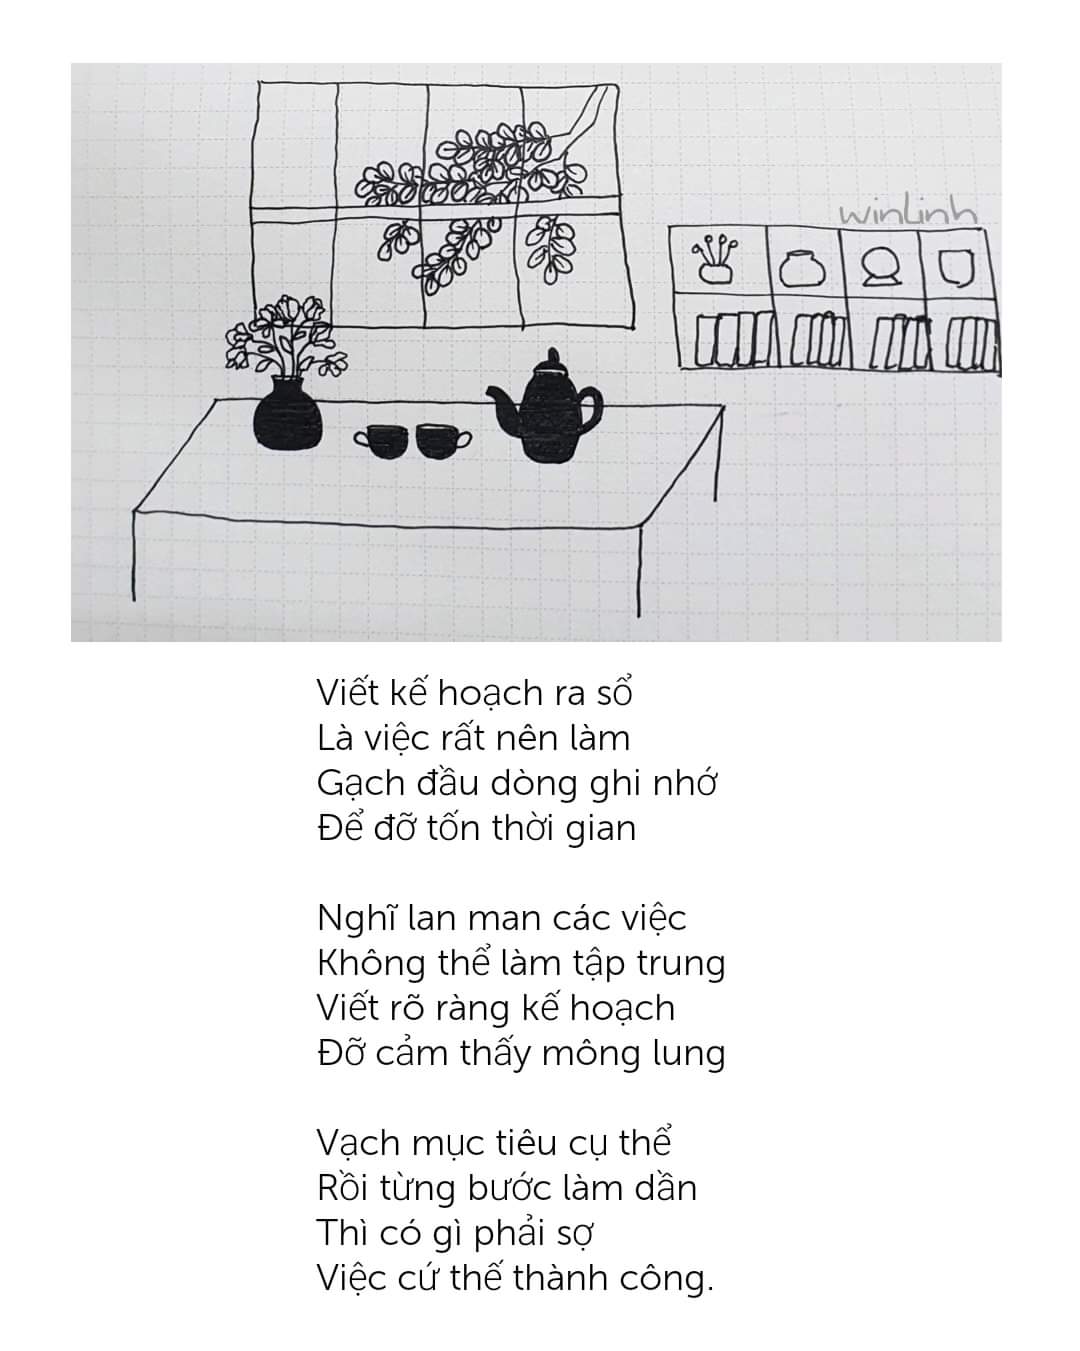 winlinh
Viết kế hoạch ra sổ
Là việc rất nên làm
Gạch đầu dòng ghi nhớ
Để đỡ tốn thời gian
Nghĩ lan man các việc
Không thể làm tập trung
Viết rõ ràng kế hoạch
Đỡ cảm thấy mông lung
Vạch mục tiêu cụ thể
Rồi từng bước làm dần
Thì có gì phải sợ
Việc cứ thế thành công.